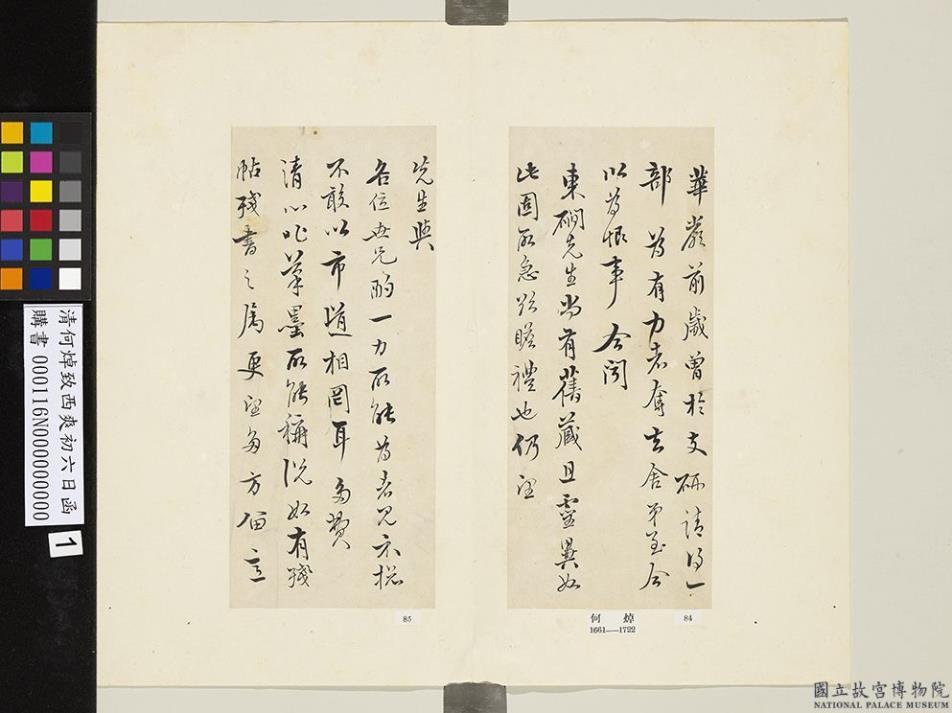 華嚴前歲曾於支硎請得一
部為有力者奪去舍弟至今
以為恨事今聞
東磵先生尚有舊藏且靈異如
此固所急欲瞻禮也仍望
先生與
各位世兄酌一力所能為者見示掟
不敢以市道相罔耳多費
清心非筆墨所能稱說如有殘
帖殘書之屬更望多方留意
何焯
1661—1722
84
85
清何焯致西爽初六日函
購書 000116N000000000
1
國立故宮博物院
NATIONAL PALACE MUSEUM